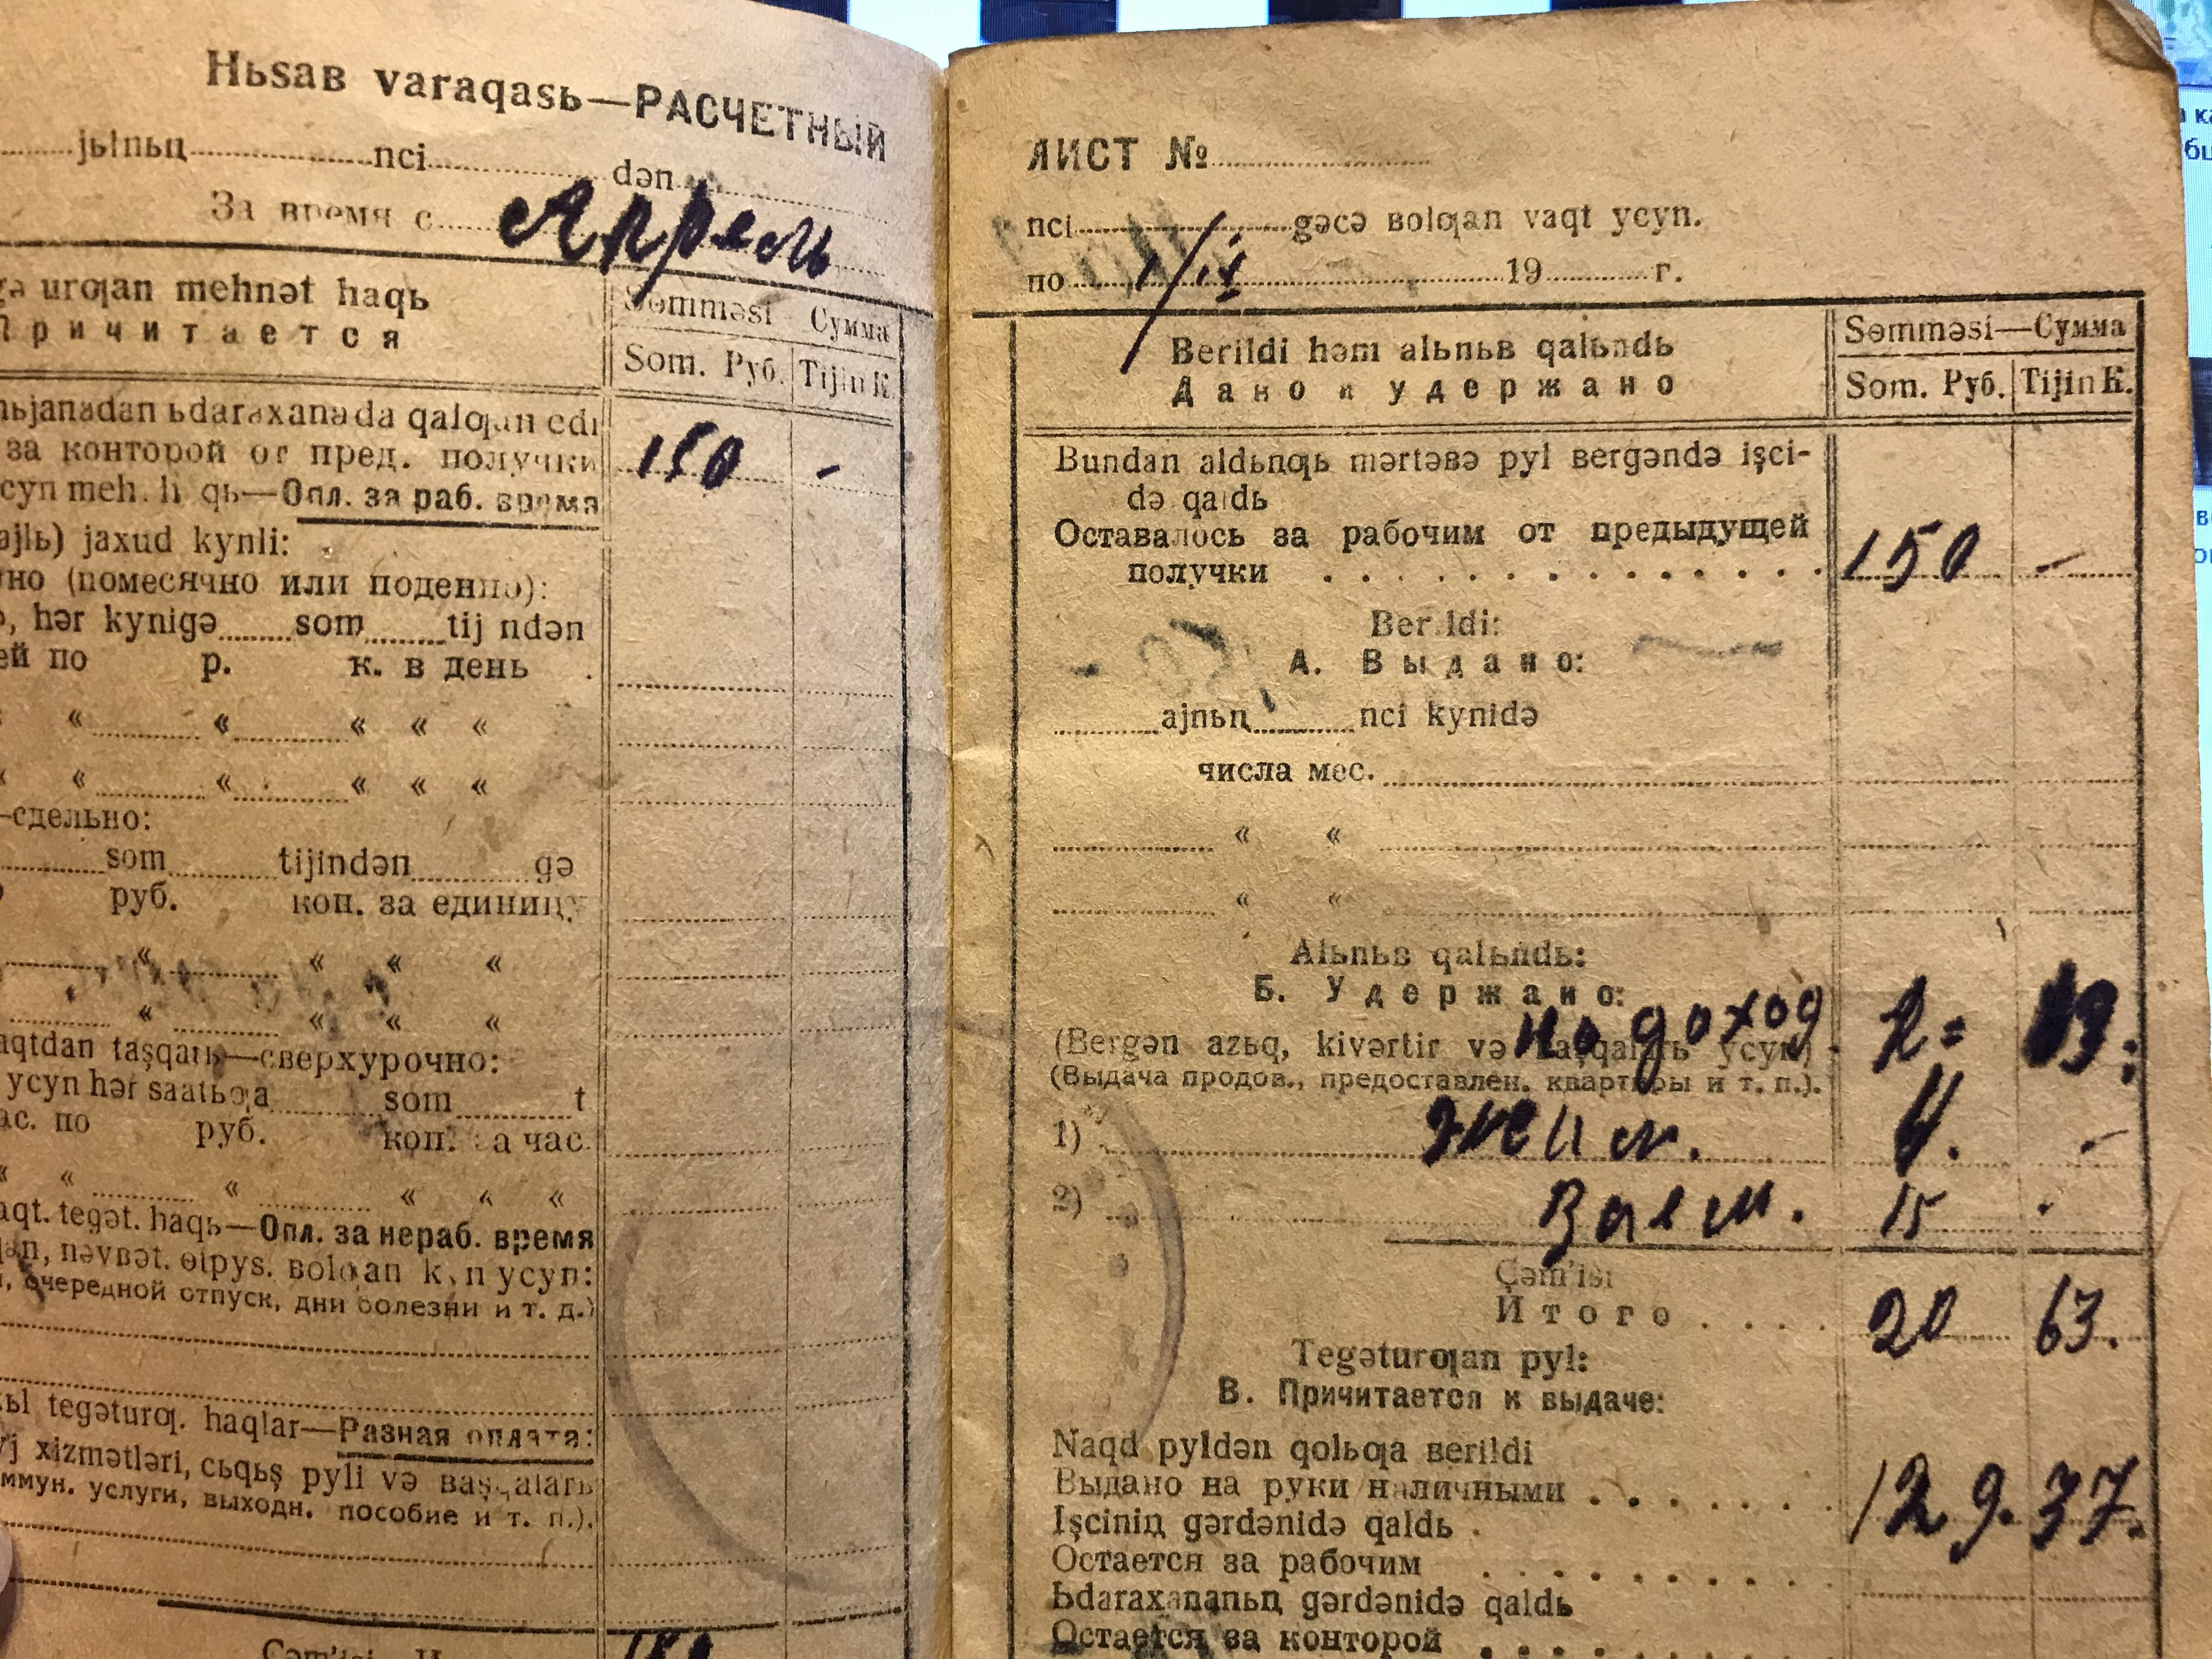 Hьsaв varaqasь—РАСЧЕТНЫЙ
jьlnьꞑ nci dən
За время с Апрель
urƣan mehnət haqь
Причитается
Səmməsi – Сумма
Som. Руб. Tijin К.
ьdaraxanada qalƣan edi
за конторой от пред. получки 150 -
ycyn meh. h qь—Опл. за раб. время
ajlь) jaxud kynli:
но (помесячно или поденно):
, hər kynigə som tij ndən
ей по р. к. в день
« « « « «
« « « « «
—сдельно:
som tijindən gə
руб. коп. за единицу
« « « «
« « « «
aqtdan taşqarь—сверхурочно:
ycyn hər saatьƣa som t
ас. по руб. коп. за час
« « « « « «
aqt. tegət. haqь—Опл. за нераб. время
nəvвət. ɵtpys. вolƣan kyn ycyn:
очередной отпуск, дни болезни и т. д.)
ьl tegəturƣ. haqlar—Разная оплата:
j xizmətləri, cьqьş pyli və вaşqalarь
ммун. услуги, выходн. пособие и т. п.).
Çəm'isi
ЛИСТ №
nci gəcə вolƣan vaqt ycyn.
по 1/ 19 г.
Berildi həm alьnьв qalьndь
Дано и удержано
Sɵmməsi—Сумма
Som. Руб. Tijin К.
Bundan aldьnƣь mərtəвə pyl вergəndə işci-
də qaldь
Оставалось за рабочим от предыдущей
получки 150 -
Berildi:
А. Выдано:
ajnьꞑ nci kynidə
числа мес.
« «
« «
Alьnьв qalьndь:
Б. Удержано:
подоход
(Bergən azьq, kivərtir və вaşqalarь ycyn)
(Выдача продов., предоставлен. квартиры и т. п.).
1) 4. -
2) Заем. 15 .
Çəm'isi
Итого 20 63.
Tegəturƣan pyl:
В. Причитается к выдаче:
Naqd pyldən qolьƣa вerildi
Выдано на руки наличными 129. 37.
Işciniꞑ gərdənidə qaldь
Остается за рабочим
Ьdaraxananьꞑ gərdənidə qaldь
Остается за конторой